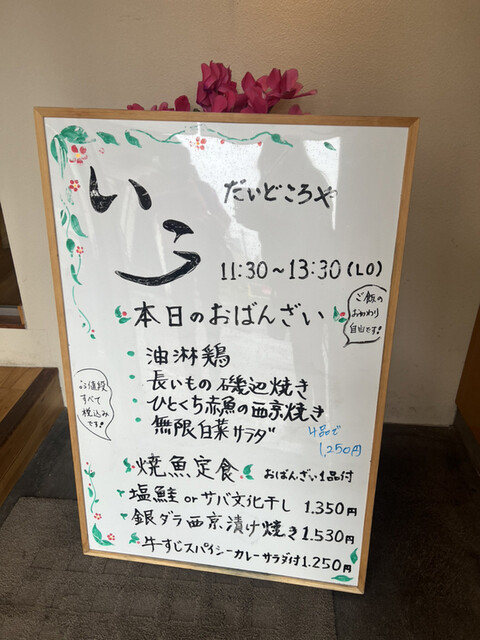 いこう
だいどころや
11:30～13:30(LO)
本日のおばんざい
ご飯の
おかわり
自由です!
油淋鶏
長いもの磯辺焼き
ひとくち赤魚の西京焼き
無限白菜サラダ
4品で
1,250円
お値段
すべて
税込み
です!
焼魚定食 おばんざい1品付
塩鮭orサバ文化干し 1.350円
銀ダラ西京漬け焼き 1.530円
牛すじスパイシーカレーサラダ付 1.250円